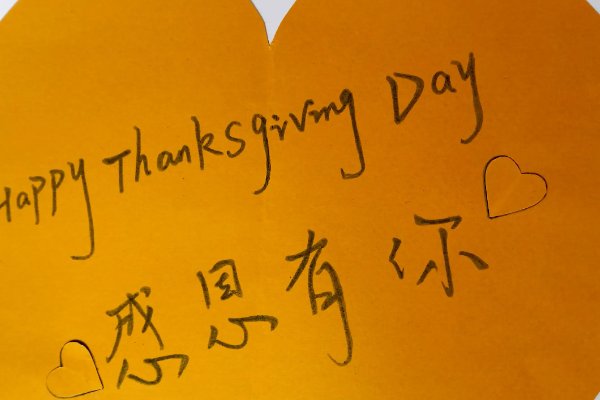 Happy Thanksgiving Day
感恩有你